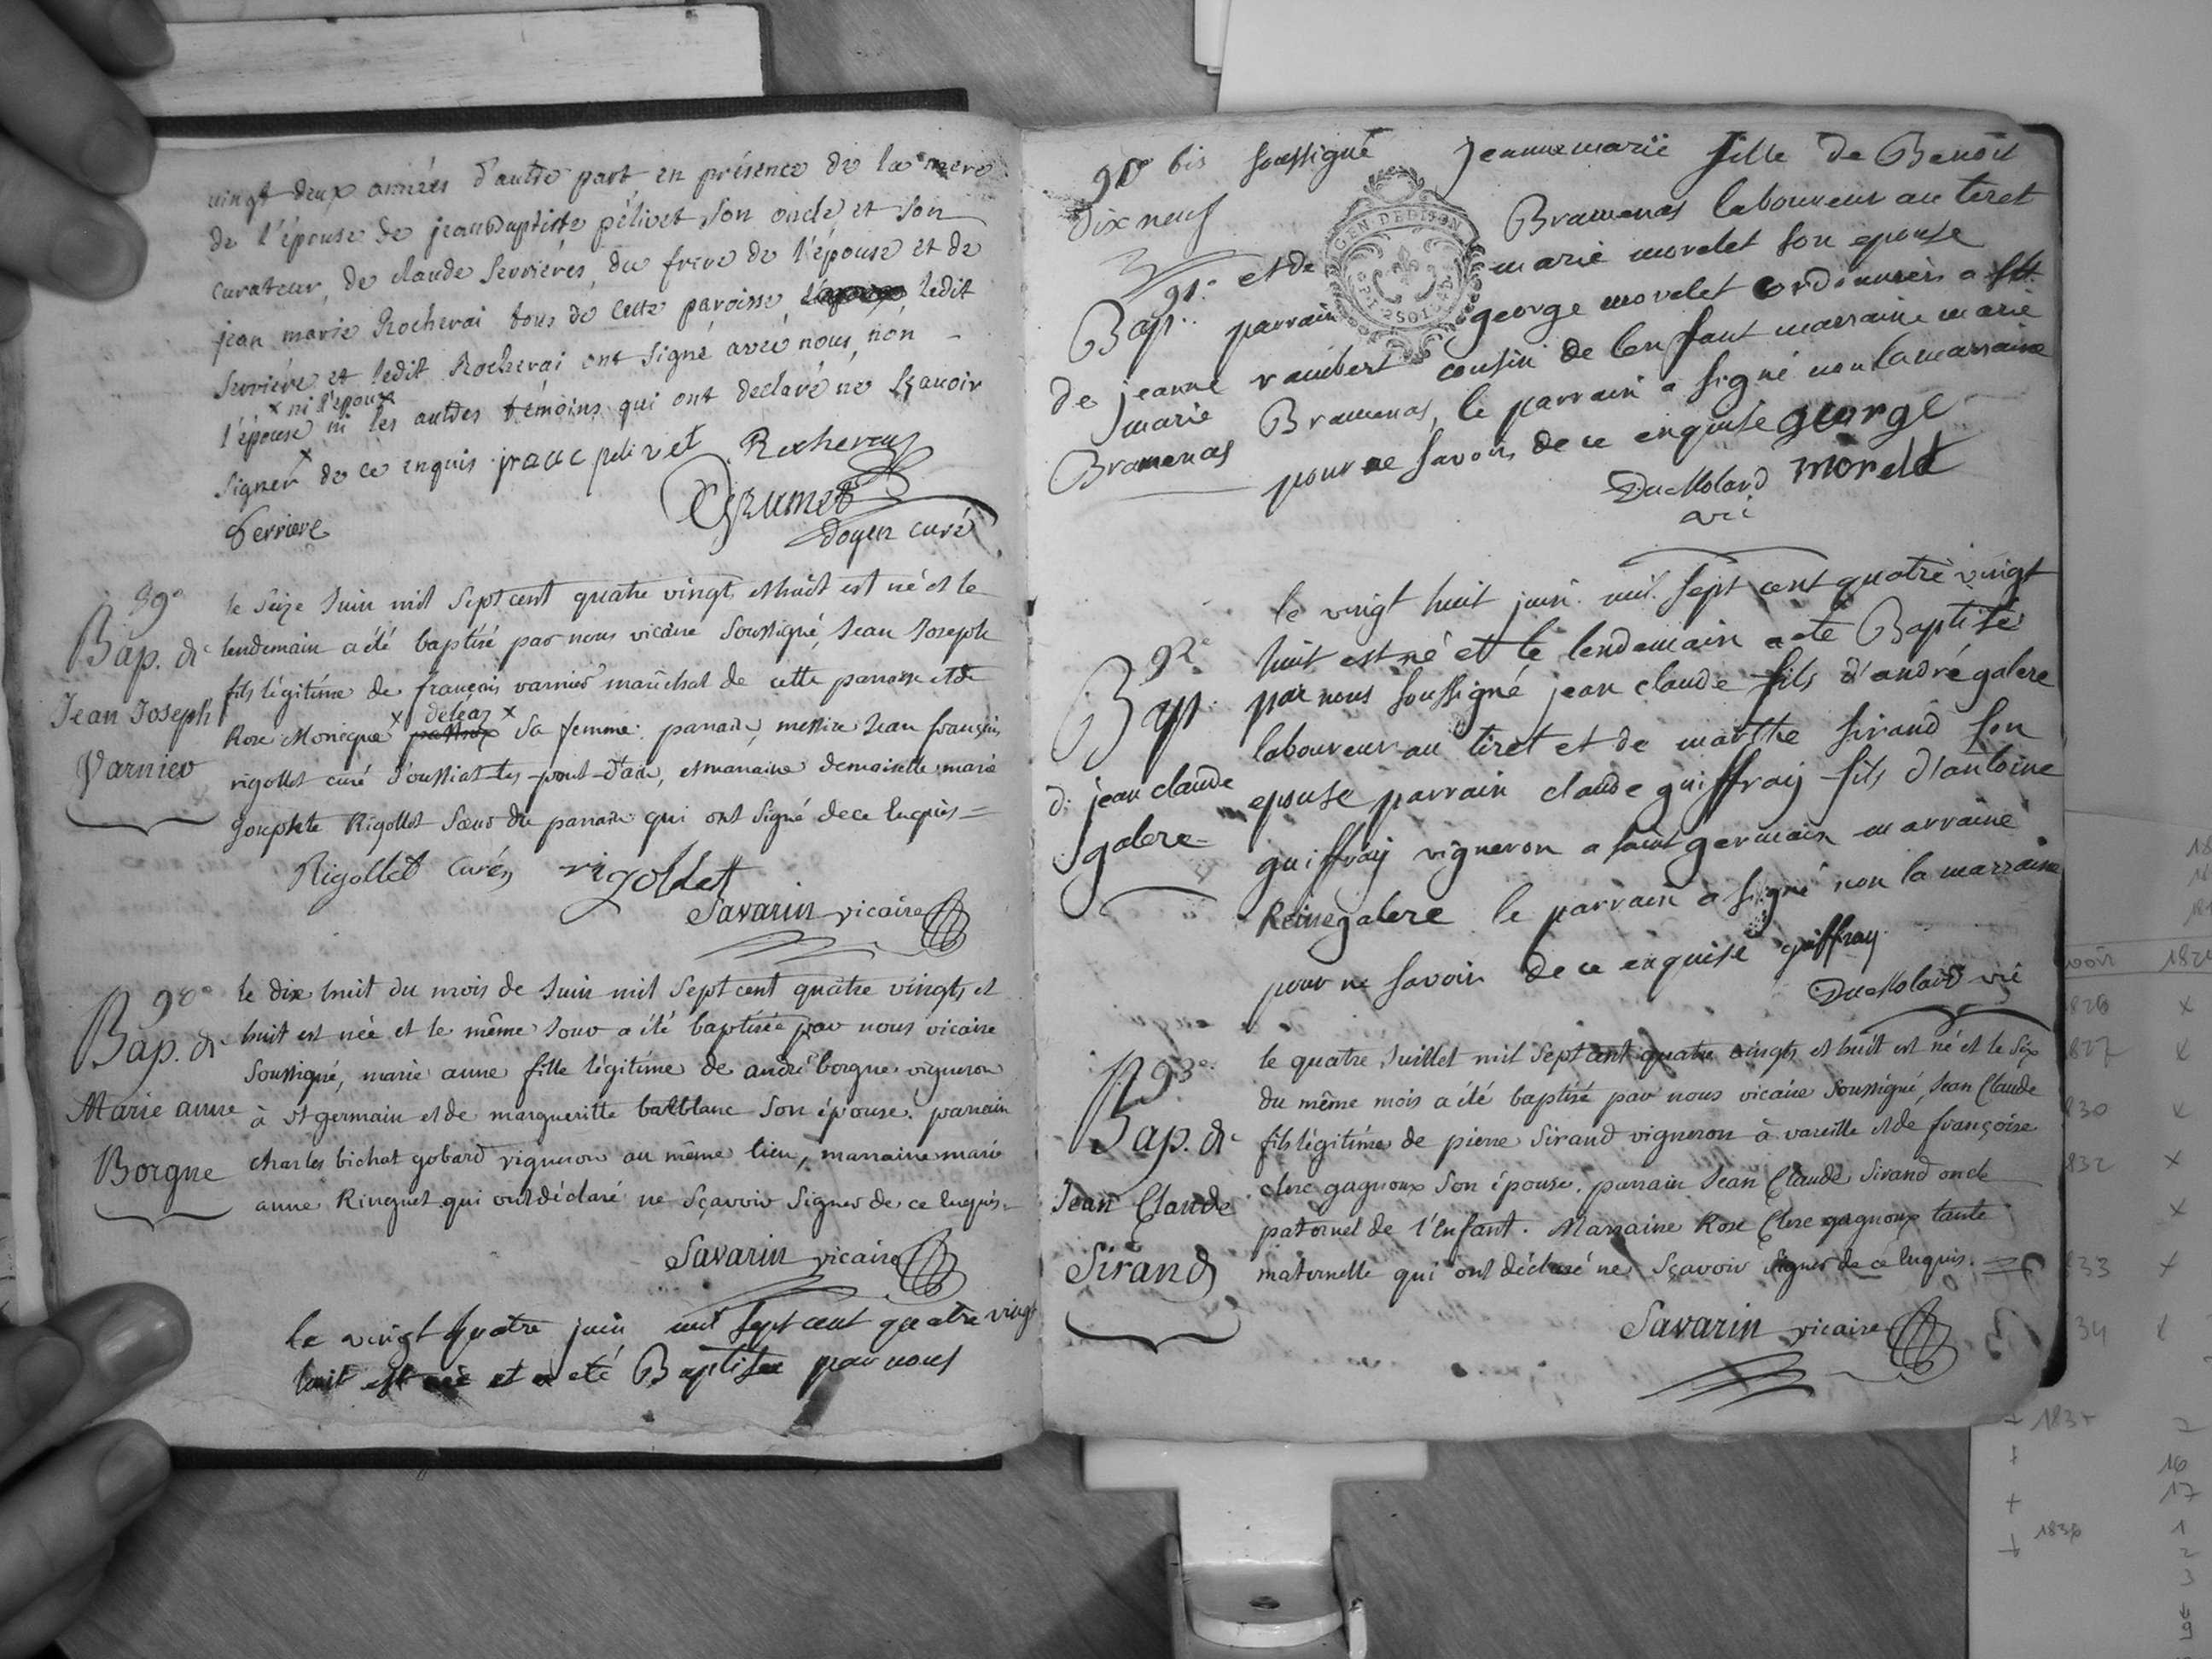 vingt deux années d'autre part en présence de la mere
de l'épouse de jean Baptiste pélivet son oncle et son
curateur, de claude serrieres, du frere de l'épouse et de
jean marie Rocherai tous de cette paroisse, ledit
serriere et ledit Rocherai ont signé avec nous, non
x ni l'epoux
l'épouse ni les autres témoins qui ont declaré ne sçavoir
signer x de ce enquis pelivet Rocherai
Grumet
Serriere
doyen curé
89e
Bap. de
Jean Joseph
Varnier
le seize Juin mil sept cent quatre vingt et huit est né et le
lendemain a été baptisé par nous vicaire soussigné, Jean Joseph
fils légitime de françois varnier maréchal de cette paroisse et de
x deléaz x
Rose Monique sa femme: parrain, messire Jean françois
rigollet curé d'oussiat-les-pont-d'ain, et marraine demoiselle marie
josephte Rigollet sœur du parrain qui ont signé de ce enquis =
Rigollet curé rigollet
Savarin vicaire
90e
Bap. de
Marie anne
Borgne
le dix huit du mois de Juin mil sept cent quatre vingts et
huit est née et le même Jour a été baptisée par nous vicaire
soussigné, marie anne fille légitime de andré borgne vigneron
à st germain et de margueritte balblanc son épouse. parrain
charles bichat gobard vigneron au même lieu, marraine marie
anne Ringuet qui ont déclaré ne sçavoir signer de ce enquis. =
Savarin vicaire
le vingt quatre juin mil sept cent quatre vingt
huit est née et a été Baptisée par nous
90 bis soussigné jeanne marie fille de Benoit
dix neuf
Bramenas laboureur au tiret
et de marie morelet son epouse
GEN. DE DIJON
91e
Bap.
de jeanne
marie
Bramenas
parrain george morelet cordonnier a st
rambert cousin de lenfant marraine marie
Bramenas, le parrain a signé non la marraine
pour ne savoir de ce enquise george
morelet
DuMolard
vic
92e
Bapt.
d. jean claude
galere
le vingt huit juin mil sept cent quatre vingt
huit est né et le lendemain a eté Baptisé
par nous soussigné jean claude fils d'andré galere
laboureur au tiret et de marthe sirand son
epouse parrain claude guiffray fils d'antoine
guiffray vigneron a saint germain marraine
Reine galere le parrain a signé non la marraine
pour ne savoir de ce enquise guiffray
DuMolard vic
93e
Bap. de
Jean Claude
Sirand
le quatre Juillet mil sept cent quatre vingts et huit est né et le six
du même mois a été baptisé par nous vicaire soussigné, Jean Claude
fils légitime de pierre Sirand vigneron à vareille et de françoise
clerc gagnoux son épouse. parrain Jean Claude Sirand oncle
paternel de l'enfant. Marraine Rose Clerc gagnoux tante
maternelle qui ont déclaré ne sçavoir signer de ce enquis.
Savarin vicaire
voir
1837
16
17
1
2
3